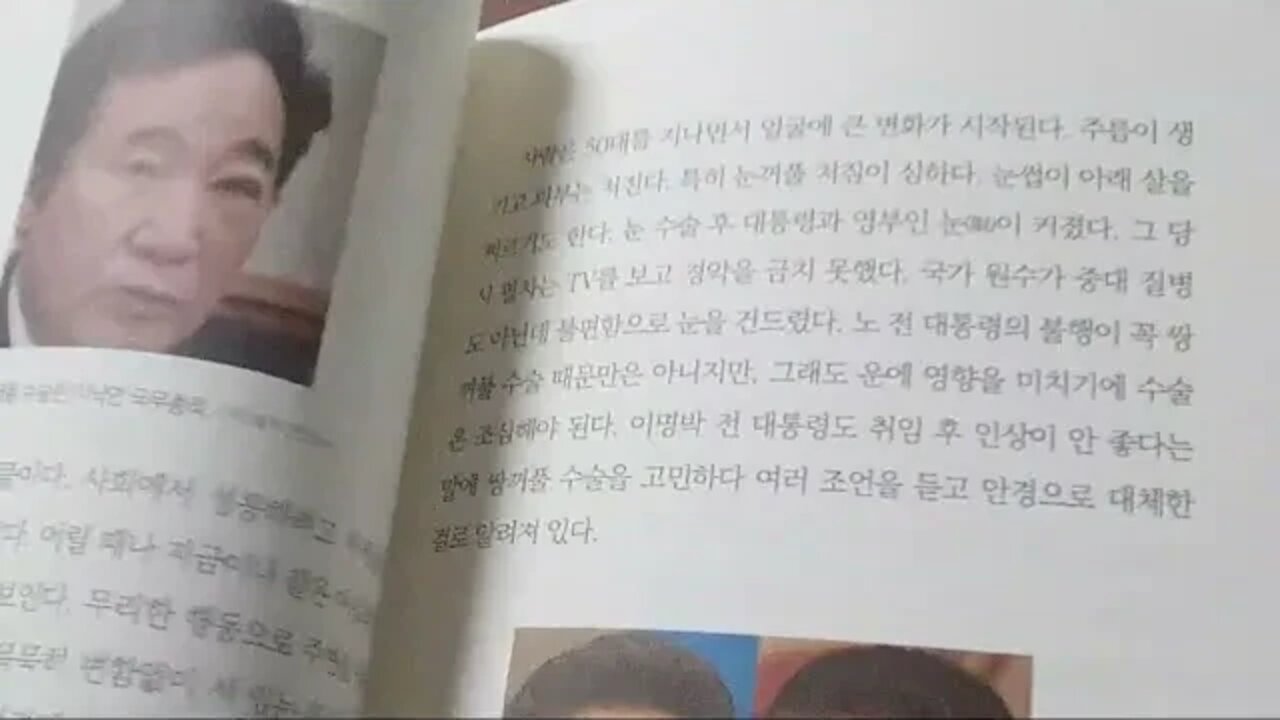 국무총리
사회에서 활동하려고
어릴 때나 지금이나
보인다. 무리한 행동으로
사람은 50대를 지나면서 얼굴에 큰 변화가 시작된다. 주름이 생
기고 피부는 처진다. 특히 눈꺼풀 처짐이 심하다. 눈썹이 아래 살을
찌르기도 한다. 눈 수술 후 대통령과 영부인 눈이 커졌다. 그 당
시 필자는 TV를 보고 경악을 금치 못했다. 국가 원수가 중대 질병
도 아닌데 불편함으로 눈을 건드렸다. 노 전 대통령의 불행이 꼭 쌍
꺼풀 수술 때문만은 아니지만, 그래도 운에 영향을 미치기에 수술
은 조심해야 된다. 이명박 전 대통령도 취임 후 인상이 안 좋다는
말에 쌍꺼풀 수술을 고민하다 여러 조언을 듣고 안경으로 대체한
걸로 알려져 있다.